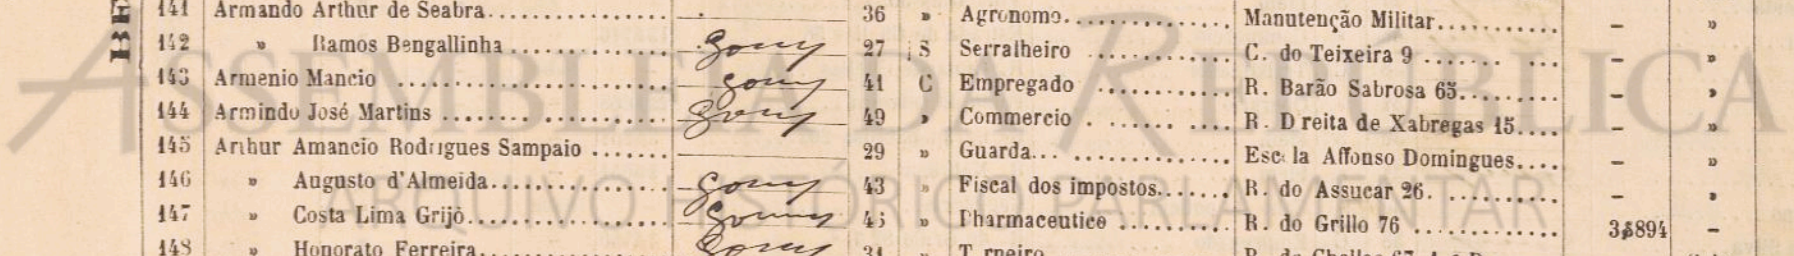 141 Armando Arthur de Seabra 36 » Agronomo Manutenção Militar – »
142 » Ramos Bengallinha 27 S Serralheiro C. do Teixeira 9 – »
143 Armenio Mancio 41 C Empregado R. Barão Sabrosa 65 – »
144 Armindo José Martins 49 » Commercio R. D reita de Xabregas 15 – »
145 Arthur Amancio Rodrigues Sampaio 29 » Guarda Esc la Affonso Domingues – »
146 » Augusto d'Almeida 43 » Fiscal dos impostos R. do Assucar 26 – »
147 » Costa Lima Grijò » Pharmaceutico R. do Grillo 76 3$894 –
148 » Honorato Ferreira 31 » T rneiro
ASSEMBLEIA DA REPÚBLICA
ARQUIVO HISTÓRICO PARLAMENTAR